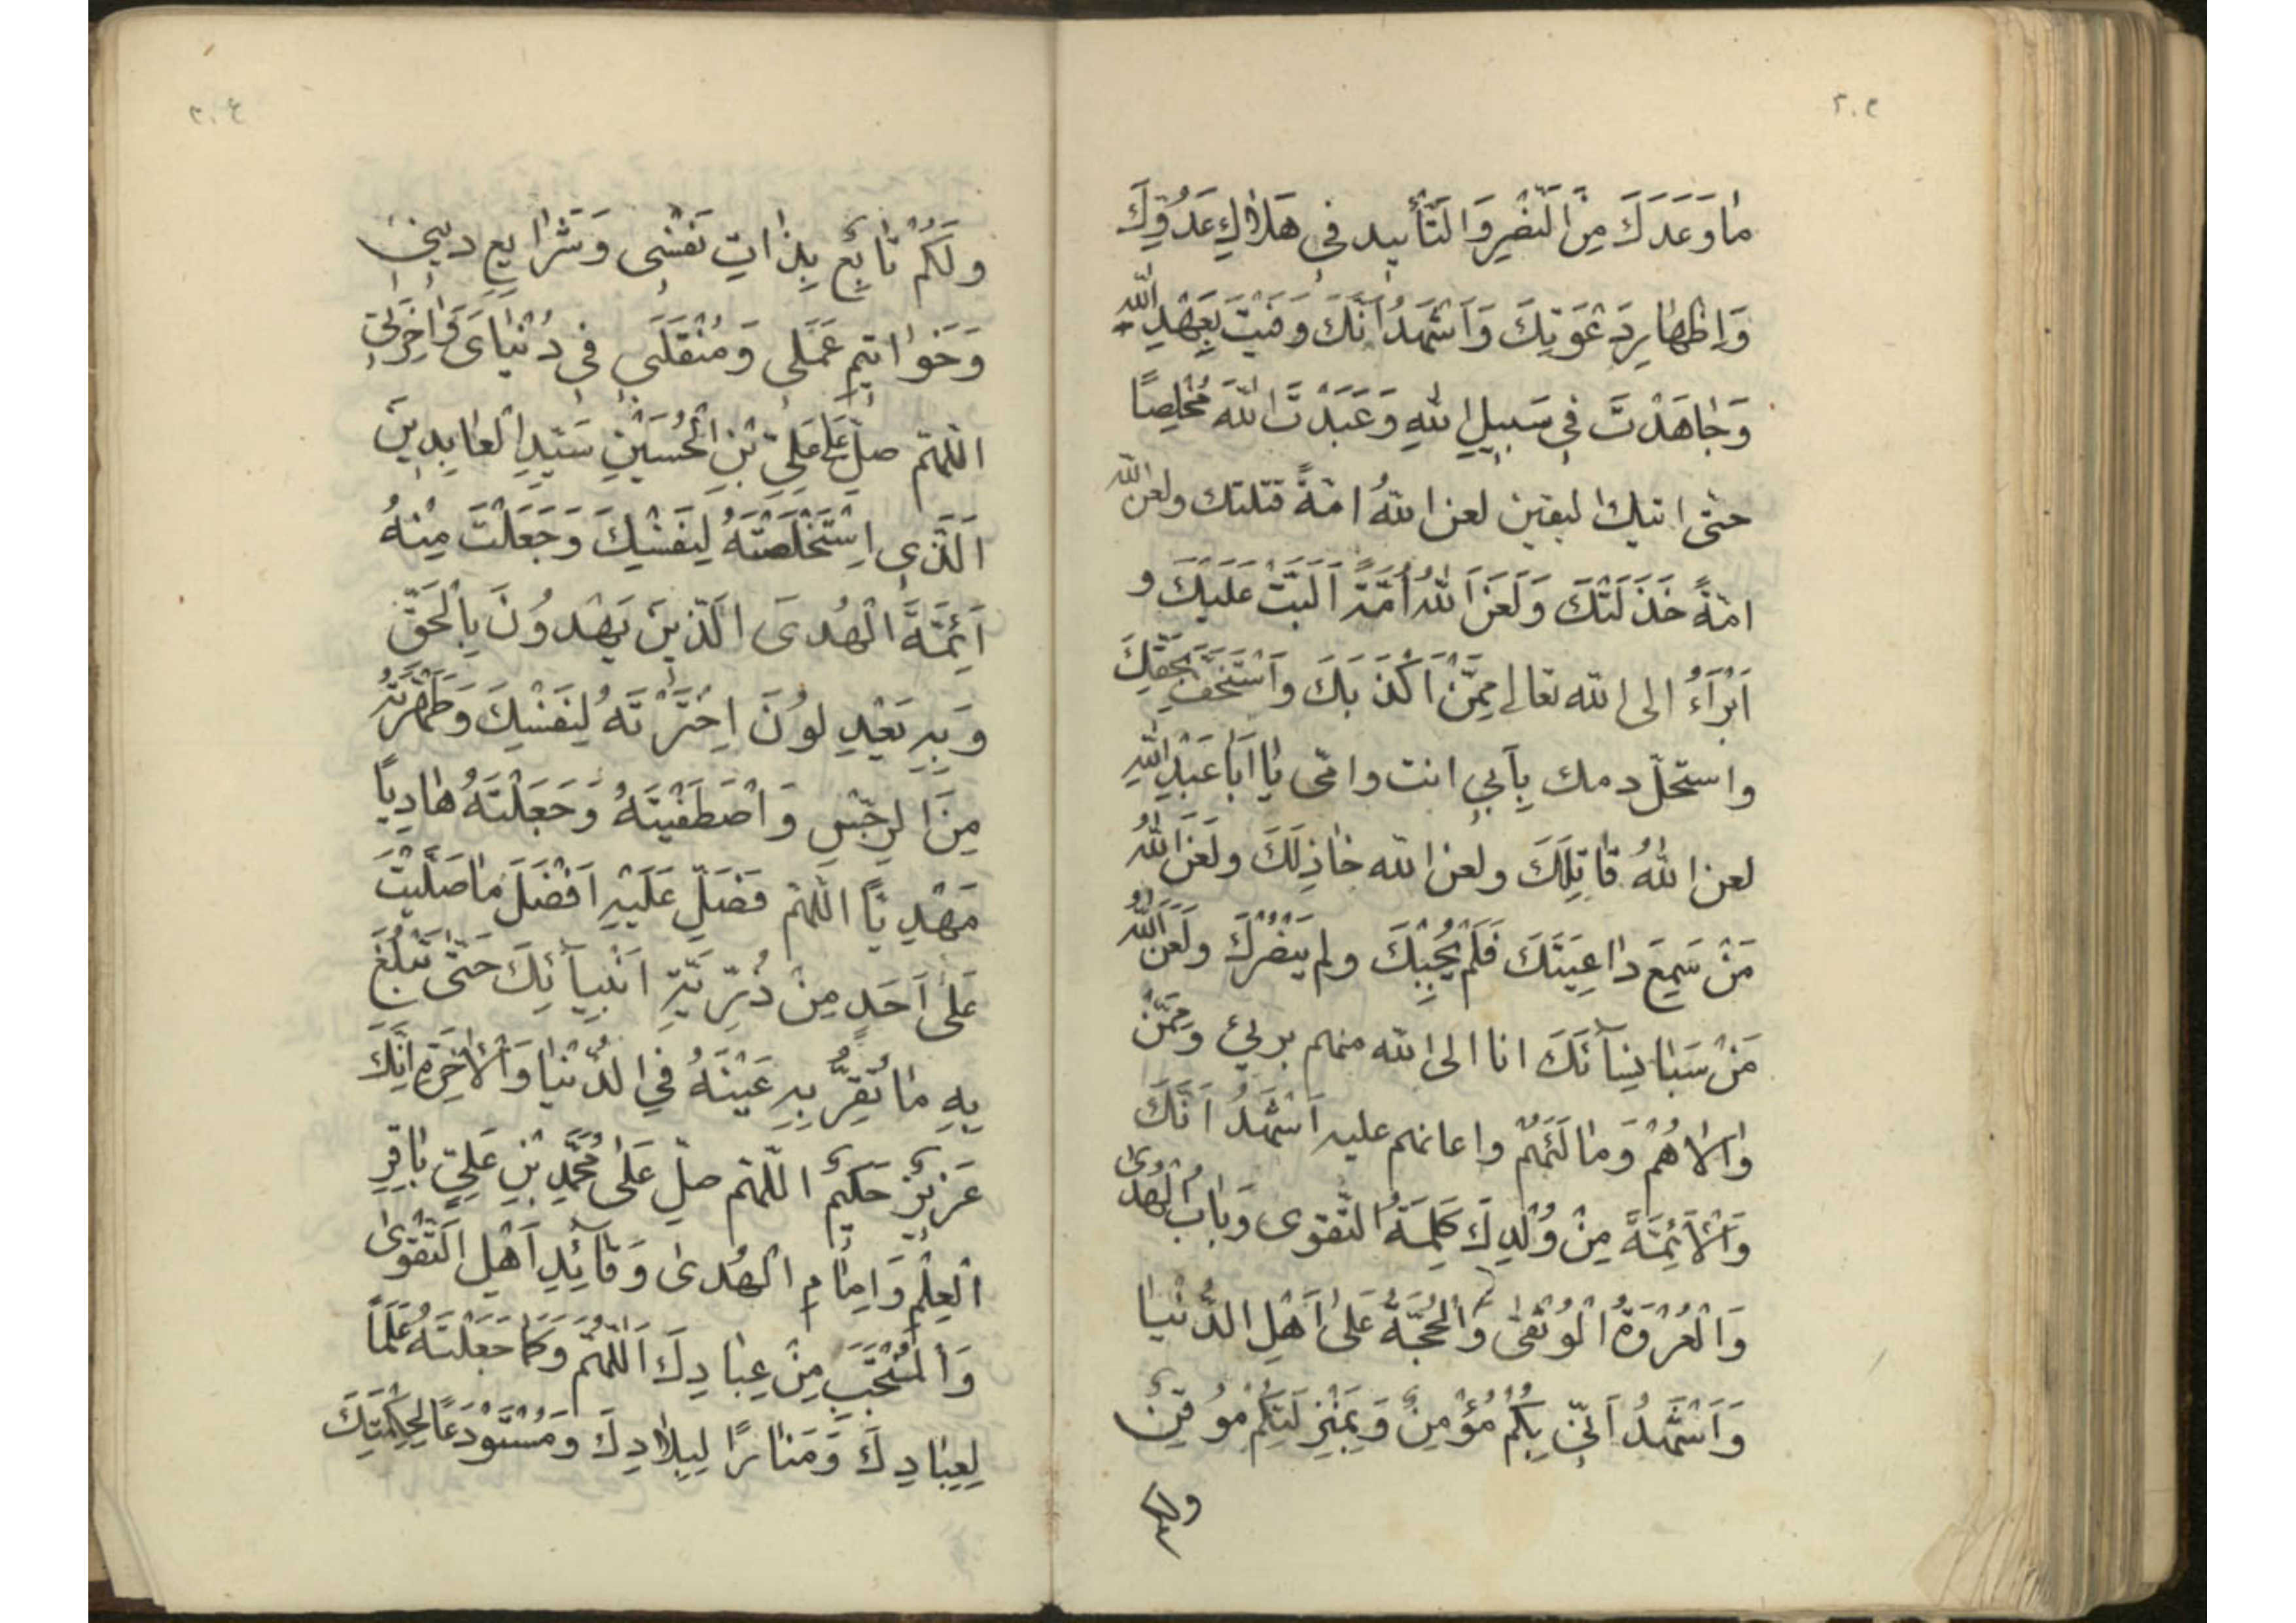 ٢٠٣
مٰا وَعَدَكَ مِنَ الَّنْصْرِ وَالتَّأْييد فِي هَلاٰكِ عَدُوِّكَ
وَاِظْهٰارِ دَعْوَتِكَ وَاَشْهَدُ اَنَّكَ وَفَيْتَ بِعَهْدِ اللّٰه
وَجٰاهَدْتَ فِي سَبيلِ اللّٰهِ وَعَبَدْتَ اللّٰهَ مُخْلِصًا
حتى اتيك اليقين لعن اللّٰهُ امّةً قتلتك ولعن اللّٰه
امّةً خَذَلَتْكَ وَلَعَنَ اللّٰهُ اُمَّةً اَلَبَّتْ عَلَيْكَ و
اَبْرَاءُ الى اللّٰه تعالى مِمَّنْ اَكْذَبَكَ وَاسْتَخَفَّ بِحَقِّكَ
واستحلّ دمك بِاَبِي انت وامّى يٰا اَبٰا عَبْدِ اللّٰهِ
لعن اللّٰهُ قٰاتِلَكَ ولعن اللّٰه خٰاذِلَكَ ولَعَنَ اللّٰهُ
مَنْ سَمِعَ دٰاعِيَتَكَ فَلَمْ يُجِبْكَ ولم يَنْصُرْكَ ولَعَنَ اللّٰهُ
مَنْ سَبٰا نِسٰآئَكَ انا الى اللّٰه منهم برىئ ومِمَّنْ
وٰالاٰهُمْ وَمٰالَئَهُمْ واعانهم عليه اَشْهَدُ اَنَّكَ
وَالْاَئِمَّةَ مِنْ وُلْدِكَ كَلِمَةُ التّقوى وَبٰابُ الْهُدىٰ
وَالْعُرْوَةُ الْوُثْقىٰ وَالْحُجَّةُ عَلىٰ اَهْلِ الدُّنْيٰا
وَاَشْهَدُ اَنّي بِكُمْ مُؤْمِنٌ وَبِمَنْزِلَتِكُمْ مُوقِنٌ
ولكم
٢٠٤
ولَكُمْ تٰابِعٌ بِذٰاتِ نَفْسِى وَشَرٰايِعِ دينى
وَخَوٰاتيمِ عَمَلى وَمُنْقَلَبى فِي دُنْيٰاىَ وَاٰخِرَتى
اللّهمّ صلّ عَلىٰ عَلِىّ بْنِ الْحُسَيْنِ سَيِّدِ الْعٰابِدينَ
اَلَّذى اِسْتَخْلَصْتَهُ لِنَفْسِكَ وَجَعَلْتَ مِنْهُ
اَئِمَّةَ الْهُدىٰ الَّذينَ يَهْدُونَ بِالْحَقِّ
وَبِهِ يَعْدِلوُنَ اِخْتَرْتَهُ لِنَفْسِكَ وَطَهَّرْتَهُ
مِنَ الرِجْسِ وَاصْطَفَيْتَهُ وَجَعَلْتَهُ هٰادِيًا
مَهْدِيًّا اللّٰهُمّ فَصَلِّ عَلَيْهِ اَفْضَلَ مٰا صَلَّيْتَ
عَلىٰ اَحَدٍ مِنْ ذُرِّيَّةِ اَنْبِيآئِكَ حَتّىٰ تَبْلُغَ
بِهِ مٰا تُقِرُّ بِهِ عَيْنَهُ فِي الدُّنْيٰا وَالْاٰخِرَةِ اِنَّكَ
عَزيزٌ حَكيمٌ اللّٰهُمّ صلّ عَلىٰ مُحَمَّدِ بْنِ عَلِىّ بٰاقِرِ
الْعِلْمِ وَاِمٰامِ الْهُدىٰ وَقٰآئِدِ اَهْلِ التَّقْوىٰ
وَالْمُنْتَجَبِ مِنْ عِبٰادِكَ اَللّهُمَّ وَكَمٰا جَعَلْتَهُ عَلَمًا
لِعِبٰادِكَ وَمَنٰارًا لِبِلاٰدِكَ وَمُسْتَوْدَعًا لِحِكْمَتِكَ